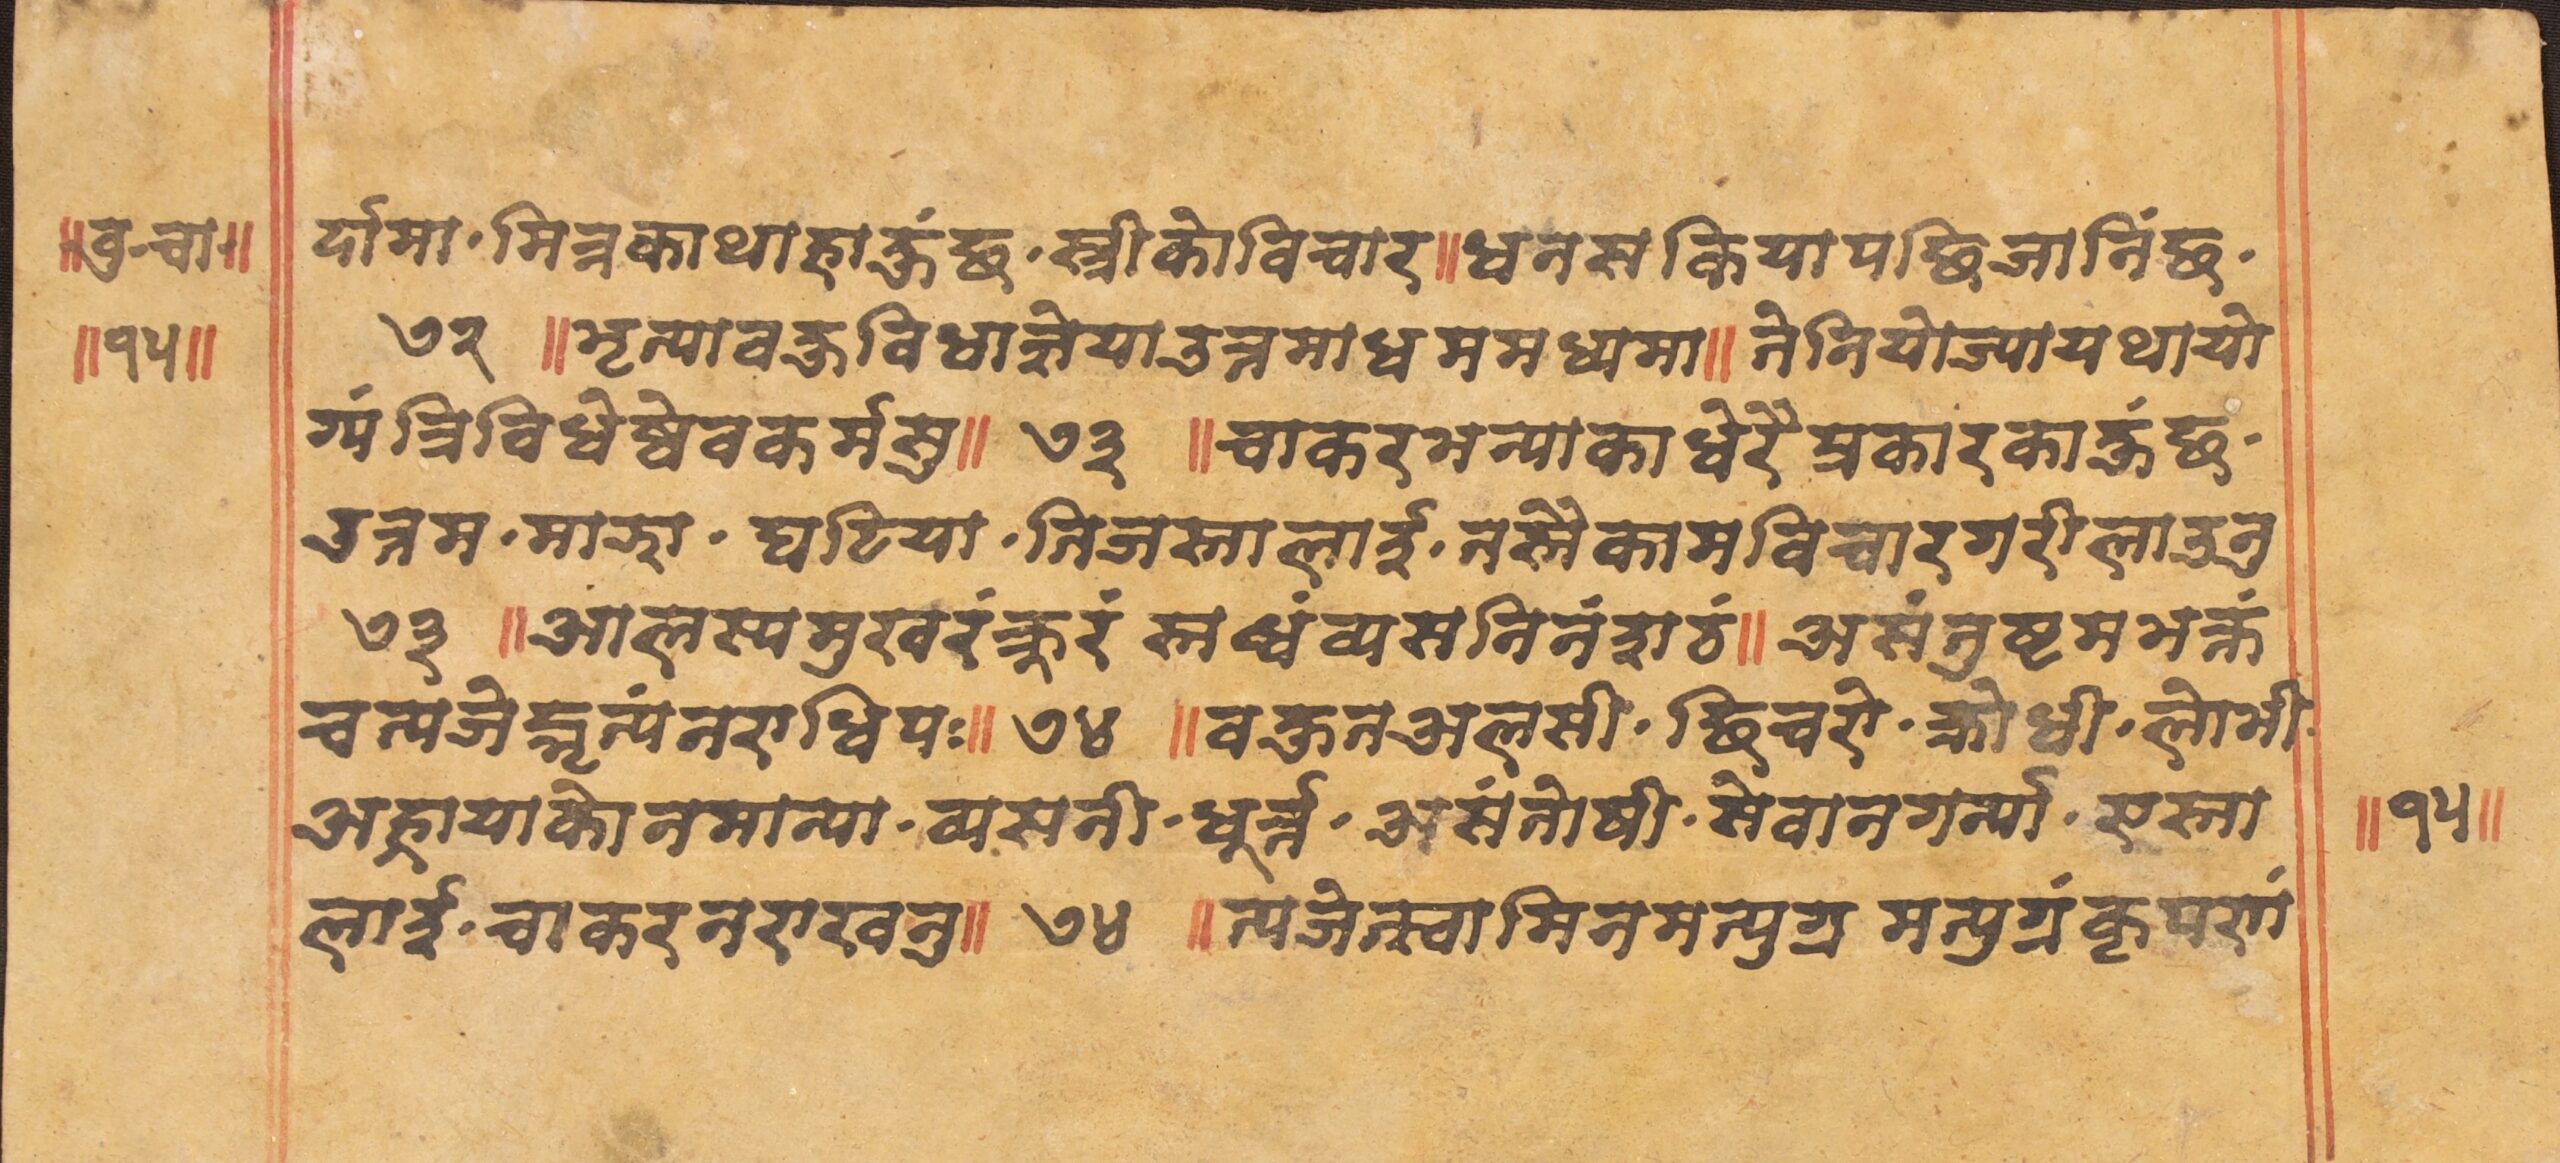 ॥वृ.चा.॥ र्दामा . मित्रकाथाहाहुंछ . स्त्रीकोविचार॥धनसकियापछिजानिंछ .
॥१५॥ ७२ ॥भृत्यावहुविधाज्ञेयाउत्तमाधममध्यमा॥ तेनियोज्यायथायो
ग्यंत्रिविधेष्वेवकर्मसु॥ ७३ ॥चाकरभन्याकाधेरैप्रकारकाहुंछ .
उत्तम . माझा . घटिया . तिजस्तालाई . तस्तैकामविचारगरीलाउनु
७३ ॥आलस्यमुखरंक्रुरं स्तब्धंव्यसनिनंशठं॥ असंतुष्टमभक्तं
चत्यजेद्भृत्यंनराधिपः॥ ७४ ॥वहुतअलसी . छिचरो . क्रोधी . लोभी .
अह्रायाकोनमान्या . व्यसनी . धूर्त्त . असंतोषी . सेवानगर्न्या . एस्ता
लाई . चाकरनराखनु॥ ७४ ॥त्यजेत्स्वामिनमत्युग्र मत्युग्रंकृपणं
॥१५॥